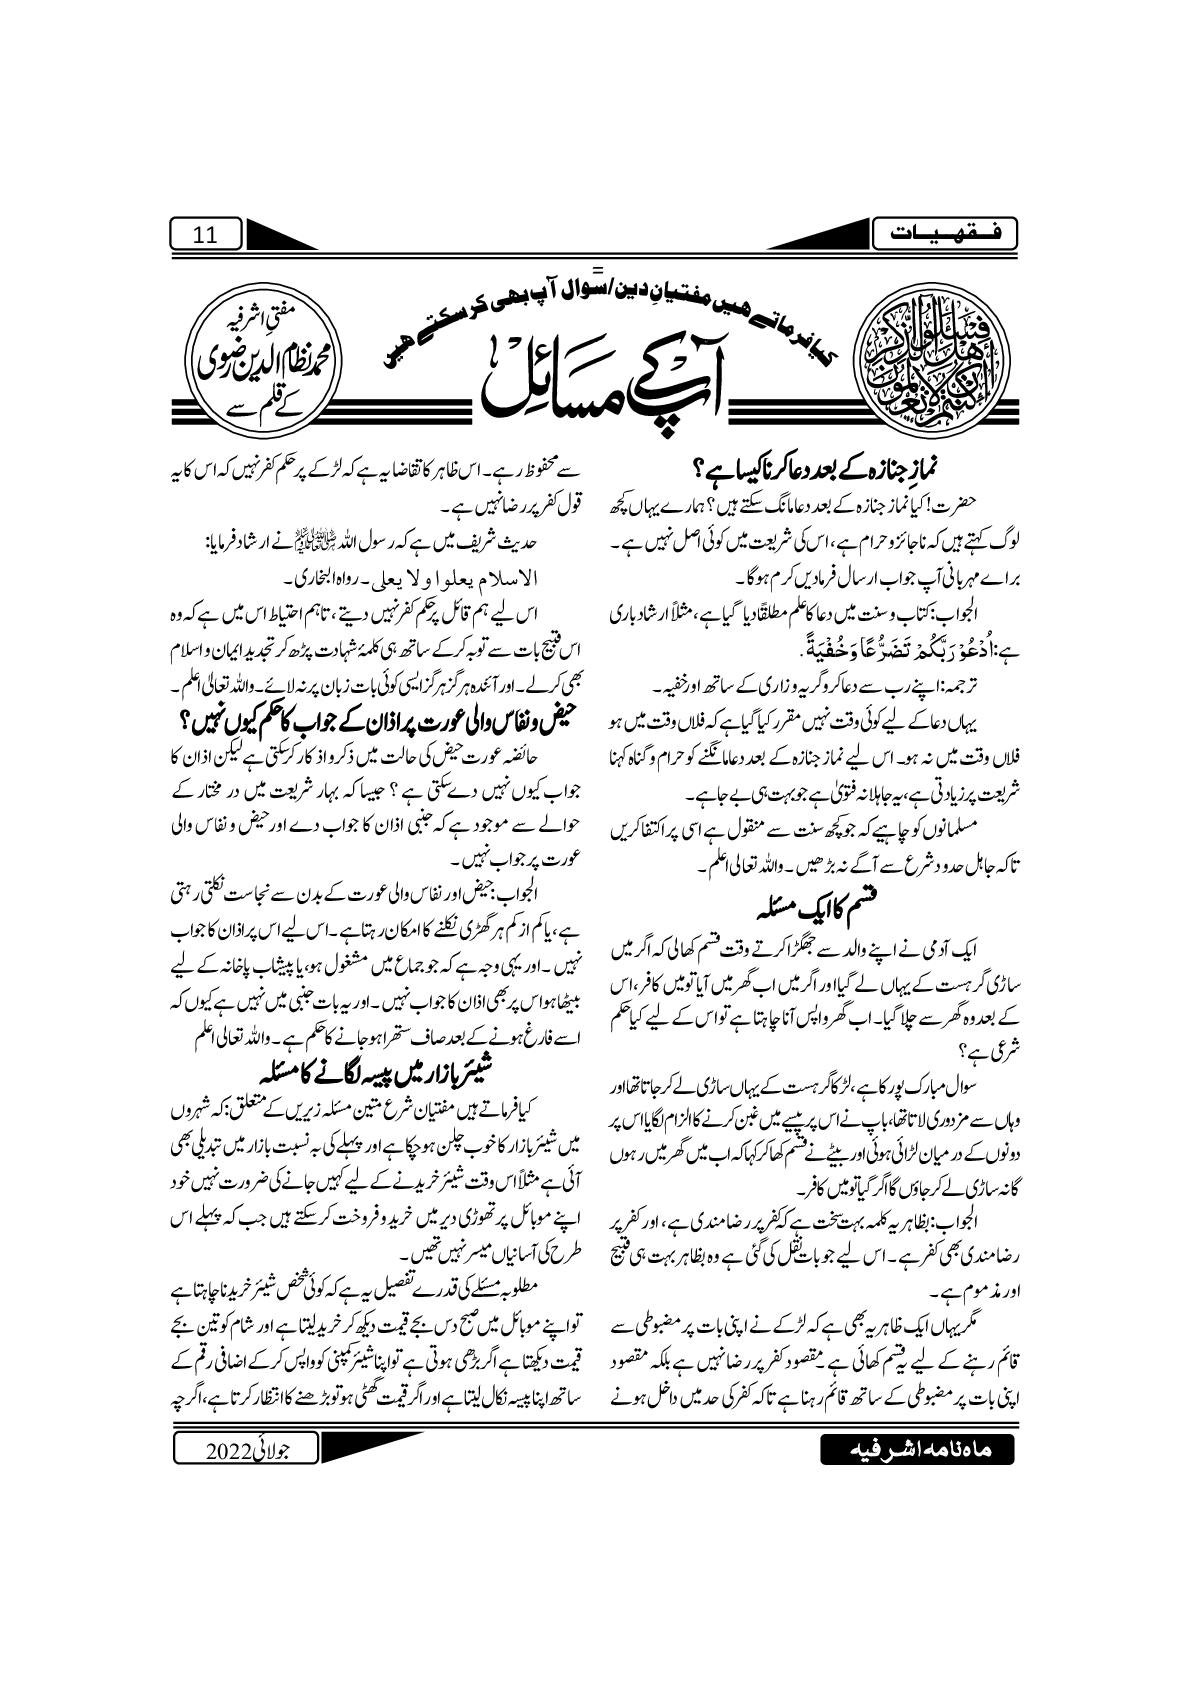 فقہیات
11
کیا فرماتے ہیں مفتیانِ دین/سوال آپ بھی کر سکتے ہیں
آپ کے مسائل
فسئلوا أهل الذكر إن كنتم لا تعلمون
مفتیِ اشرفیہ
محمد نظام الدین رضوی
کے قلم سے
نمازِ جنازہ کے بعد دعا کرنا کیسا ہے؟
حضرت! کیا نماز جنازہ کے بعد دعا مانگ سکتے ہیں؟ ہمارے یہاں کچھ
لوگ کہتے ہیں کہ ناجائز و حرام ہے، اس کی شریعت میں کوئی اصل نہیں ہے۔
براے مہربانی آپ جواب ارسال فرمادیں کرم ہوگا۔
الجواب: کتاب و سنت میں دعا کا علم مطلقاً دیا گیا ہے، مثلاً ارشاد باری
ہے: اُدْعُوْ رَبَّكُمْ تَضَرُّعًا وَخُفْيَةً.
ترجمہ: اپنے رب سے دعا کرو گریہ و زاری کے ساتھ اور خفیہ۔
یہاں دعا کے لیے کوئی وقت نہیں مقرر کیا گیا ہے کہ فلاں وقت میں ہو
فلاں وقت میں نہ ہو۔ اس لیے نماز جنازہ کے بعد دعا مانگنے کو حرام و گناہ کہنا
شریعت پر زیادتی ہے، یہ جاہلانہ فتویٰ ہے جو بہت ہی بے جا ہے۔
مسلمانوں کو چاہیے کہ جو کچھ سنت سے منقول ہے اسی پر اکتفا کریں
تاکہ جاہل حدود شرع سے آگے نہ بڑھیں۔ واللہ تعالی اعلم۔
قسم کا ایک مسئلہ
ایک آدمی نے اپنے والد سے جھگڑا کرتے وقت قسم کھالی کہ اگر میں
ساڑی گرہست کے یہاں لے گیا اور اگر میں اب گھر میں آیا تو میں کافر، اس
کے بعد وہ گھر سے چلا گیا۔ اب گھر واپس آنا چاہتا ہے تو اس کے لیے کیا حکم
شرعی ہے؟
سوال مبارک پور کا ہے، لڑکا گرہست کے یہاں ساڑی لے کر جاتا تھا اور
وہاں سے مزدوری لاتا تھا، باپ نے اس پر پیسے میں غبن کرنے کا الزام لگایا اس پر
دونوں کے درمیان لڑائی ہوئی اور بیٹے نے قسم کھا کر کہا کہ اب میں گھر میں رہوں
گا نہ ساڑی لے کر جاؤں گا اگر گیا تو میں کافر۔
الجواب: بظاہر یہ کلمہ بہت سخت ہے کہ کفر پر رضامندی ہے، اور کفر پر
رضامندی بھی کفر ہے۔ اس لیے جو بات نقل کی گئی ہے وہ بظاہر بہت ہی قبیح
اور مذموم ہے۔
مگر یہاں ایک ظاہر یہ بھی ہے کہ لڑکے نے اپنی بات پر مضبوطی سے
قائم رہنے کے لیے یہ قسم کھائی ہے۔ مقصود کفر پر رضا نہیں ہے بلکہ مقصود
اپنی بات پر مضبوطی کے ساتھ قائم رہنا ہے تاکہ کفر کی حد میں داخل ہونے
سے محفوظ رہے۔ اس ظاہر کا تقاضا یہ ہے کہ لڑکے پر حکم کفر نہیں کہ اس کا یہ
قول کفر پر رضا نہیں ہے۔
حدیث شریف میں ہے کہ رسول اللہ ﷺ نے ارشاد فرمایا:
الاسلام یعلوا ولا یعلی۔ رواہ البخاری۔
اس لیے ہم قائل پر حکم کفر نہیں دیتے، تاہم احتیاط اس میں ہے کہ وہ
اس قبیح بات سے توبہ کرکے ساتھ ہی کلمۂ شہادت پڑھ کر تجدید ایمان و اسلام
بھی کرلے۔ اور آئندہ ہرگز ہرگز ایسی کوئی بات زبان پر نہ لائے۔ واللہ تعالی اعلم۔
حیض و نفاس والی عورت پر اذان کے جواب کا حکم کیوں نہیں؟
حائضہ عورت حیض کی حالت میں ذکر و اذکار کرسکتی ہے لیکن اذان کا
جواب کیوں نہیں دے سکتی ہے؟ جیسا کہ بہار شریعت میں در مختار کے
حوالے سے موجود ہے کہ جنبی اذان کا جواب دے اور حیض و نفاس والی
عورت پر جواب نہیں۔
الجواب: حیض اور نفاس والی عورت کے بدن سے نجاست نکلتی رہتی
ہے، یا کم از کم ہر گھڑی نکلنے کا امکان رہتا ہے۔ اس لیے اس پر اذان کا جواب
نہیں۔ اور یہی وجہ ہے کہ جو جماع میں مشغول ہو، یا پیشاب پاخانہ کے لیے
بیٹھا ہوا اس پر بھی اذان کا جواب نہیں۔ اور یہ بات جنبی میں نہیں ہے کیوں کہ
اسے فارغ ہونے کے بعد صاف ستھرا ہو جانے کا حکم ہے۔ واللہ تعالی اعلم
شیئر بازار میں پیسہ لگانے کا مسئلہ
کیا فرماتے ہیں مفتیان شرع متین مسئلہ زیریں کے متعلق: کہ شہروں
میں شیئر بازار کا خوب چلن ہو چکا ہے اور پہلے کی بہ نسبت بازار میں تبدیلی بھی
آئی ہے مثلاً اس وقت شیئر خریدنے کے لیے کہیں جانے کی ضرورت نہیں خود
اپنے موبائل پر تھوڑی دیر میں خرید و فروخت کرسکتے ہیں جب کہ پہلے اس
طرح کی آسانیاں میسر نہیں تھیں۔
مطلوبہ مسئلے کی قدرے تفصیل یہ ہے کہ کوئی شخص شیئر خریدنا چاہتا ہے
تو اپنے موبائل میں صبح دس بجے قیمت دیکھ کر خرید لیتا ہے اور شام کو تین بجے
قیمت دیکھتا ہے اگر بڑھی ہوتی ہے تو اپنا شیئر کمپنی کو واپس کرکے اضافی رقم کے
ساتھ اپنا پیسہ نکال لیتا ہے اور اگر قیمت گھٹی ہو تو بڑھنے کا انتظار کرتا ہے، اگرچہ
ماہ نامہ اشرفیہ
جولائی 2022